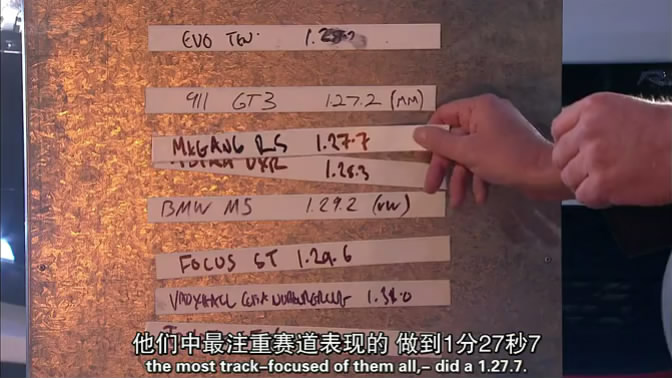 EVO TEN
911 GT3 1.27.2 (MM)
MEGANE RS 1.27.7
VXR 1.28.3
BMW M5 1.29.2 (VW)
FOCUS ST 1.29.6
VAUXHALL CORSA NURBURGRING 1.31.0
他们中最注重赛道表现的 做到1分27秒7
the most track-focused of them all,- did a 1.27.7.